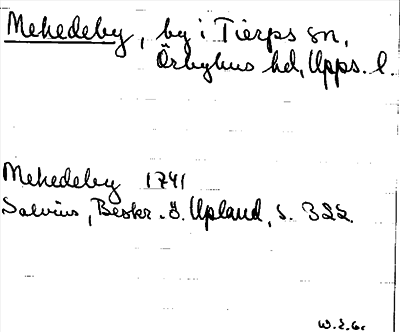 Mehedeby, by i Tierps sn,
Örbyhus hd, Upps. l.
Mehedeby 1741
Salvius, Beskr. ö. Upland, s. 322.
W.E.G.